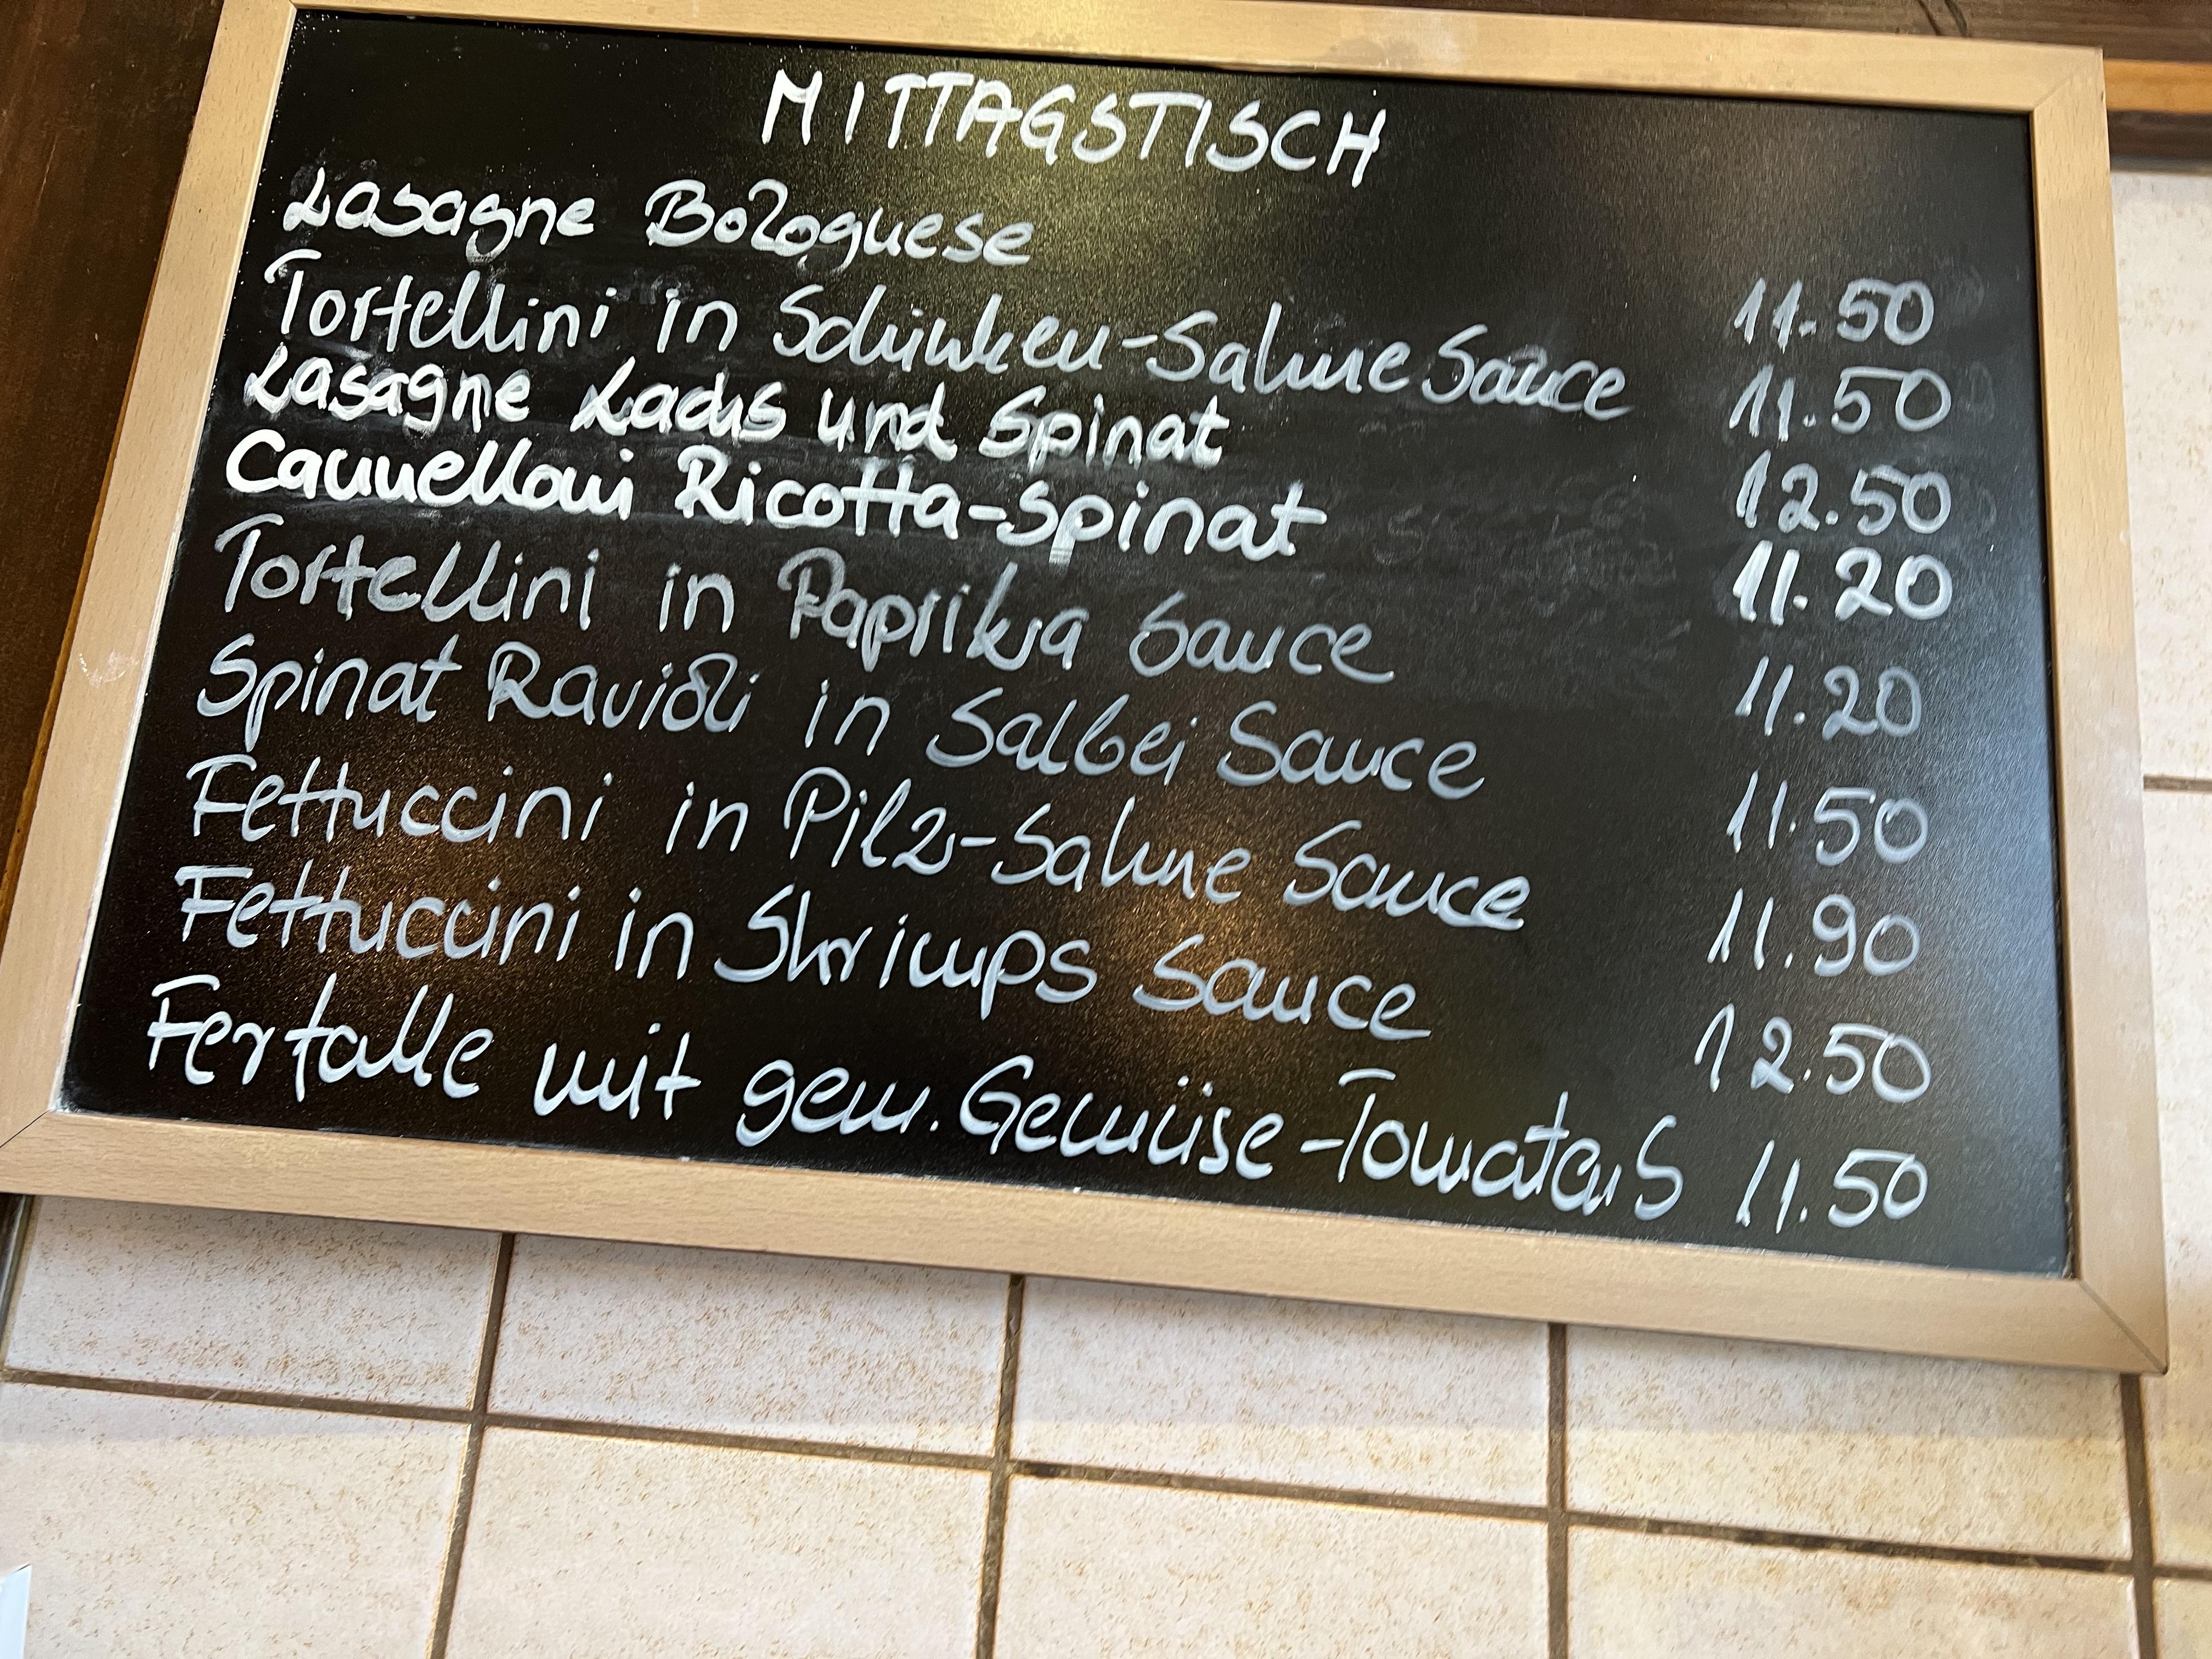 MITTAGSTISCH
Lasagne Bolognese 11.50
Tortellini in Schinken-Sahne Sauce 11.50
Lasagne Lachs und Spinat 12.50
Cannelloni Ricotta-Spinat 11.20
Tortellini in Paprika Sauce 11.20
Spinat Ravioli in Salbei Sauce 11.50
Fettuccini in Pilz-Sahne Sauce 11.90
Fettuccini in Shrimps Sauce 12.50
Ferfalle mit gem. Gemüse-Tomaten S 11.50